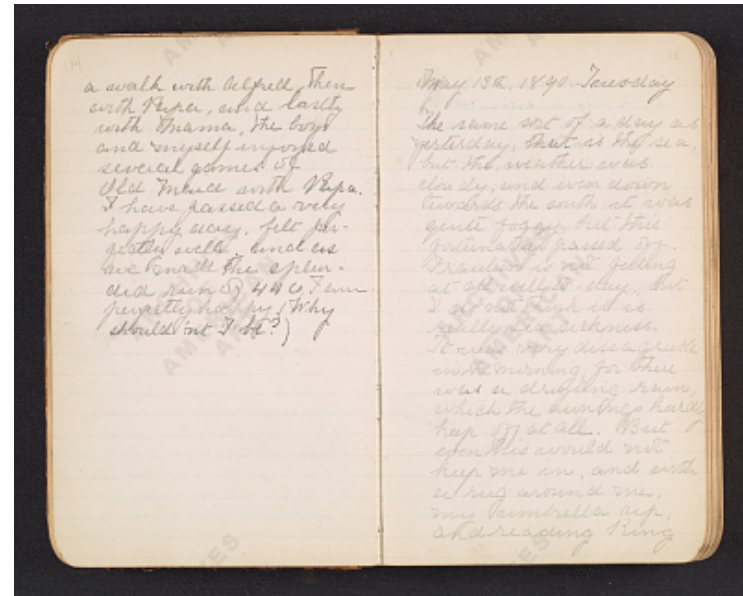 14
a walk with Alfred, then
with Papa, and lastly
with Mama, the boys
and myself enjoyed
several games of
Old Maid with Papa.
I have passed a very
happy day, felt per-
fectly well, and as
we made the splen-
did run of 440, I am
perfectly happy (Why
should not I be?)
15
May 13th. 1890 Tuesday
The same sort of a day as
yesterday, that is the sea,
but the weather was
cloudy, and even down
towards the south it was
quite foggy, but this
fortunately passed off.
Fraulein is not feeling
at all well to-day, but
I do not think it is
really sea sickness.
It was very disagreeable
in the morning, for there
was a drizzling rain,
which the awnings hardly
keep off at all. But
even this would not
keep me in, and with
a rug around me,
my umbrella up,
and reading King